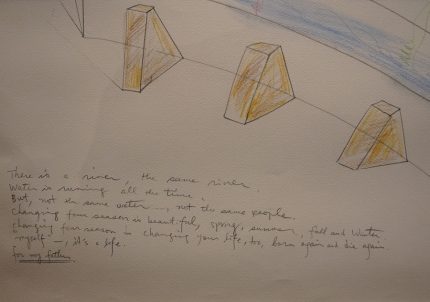 There is a river, the same river.
Water is running all the time.
But, not the same water —, not the same people.
Changing four season is beautiful, spring, summer, fall and winter
Changing four season is changing your life, too, born again and die again.
"myself" —, it's a life.
for my father.